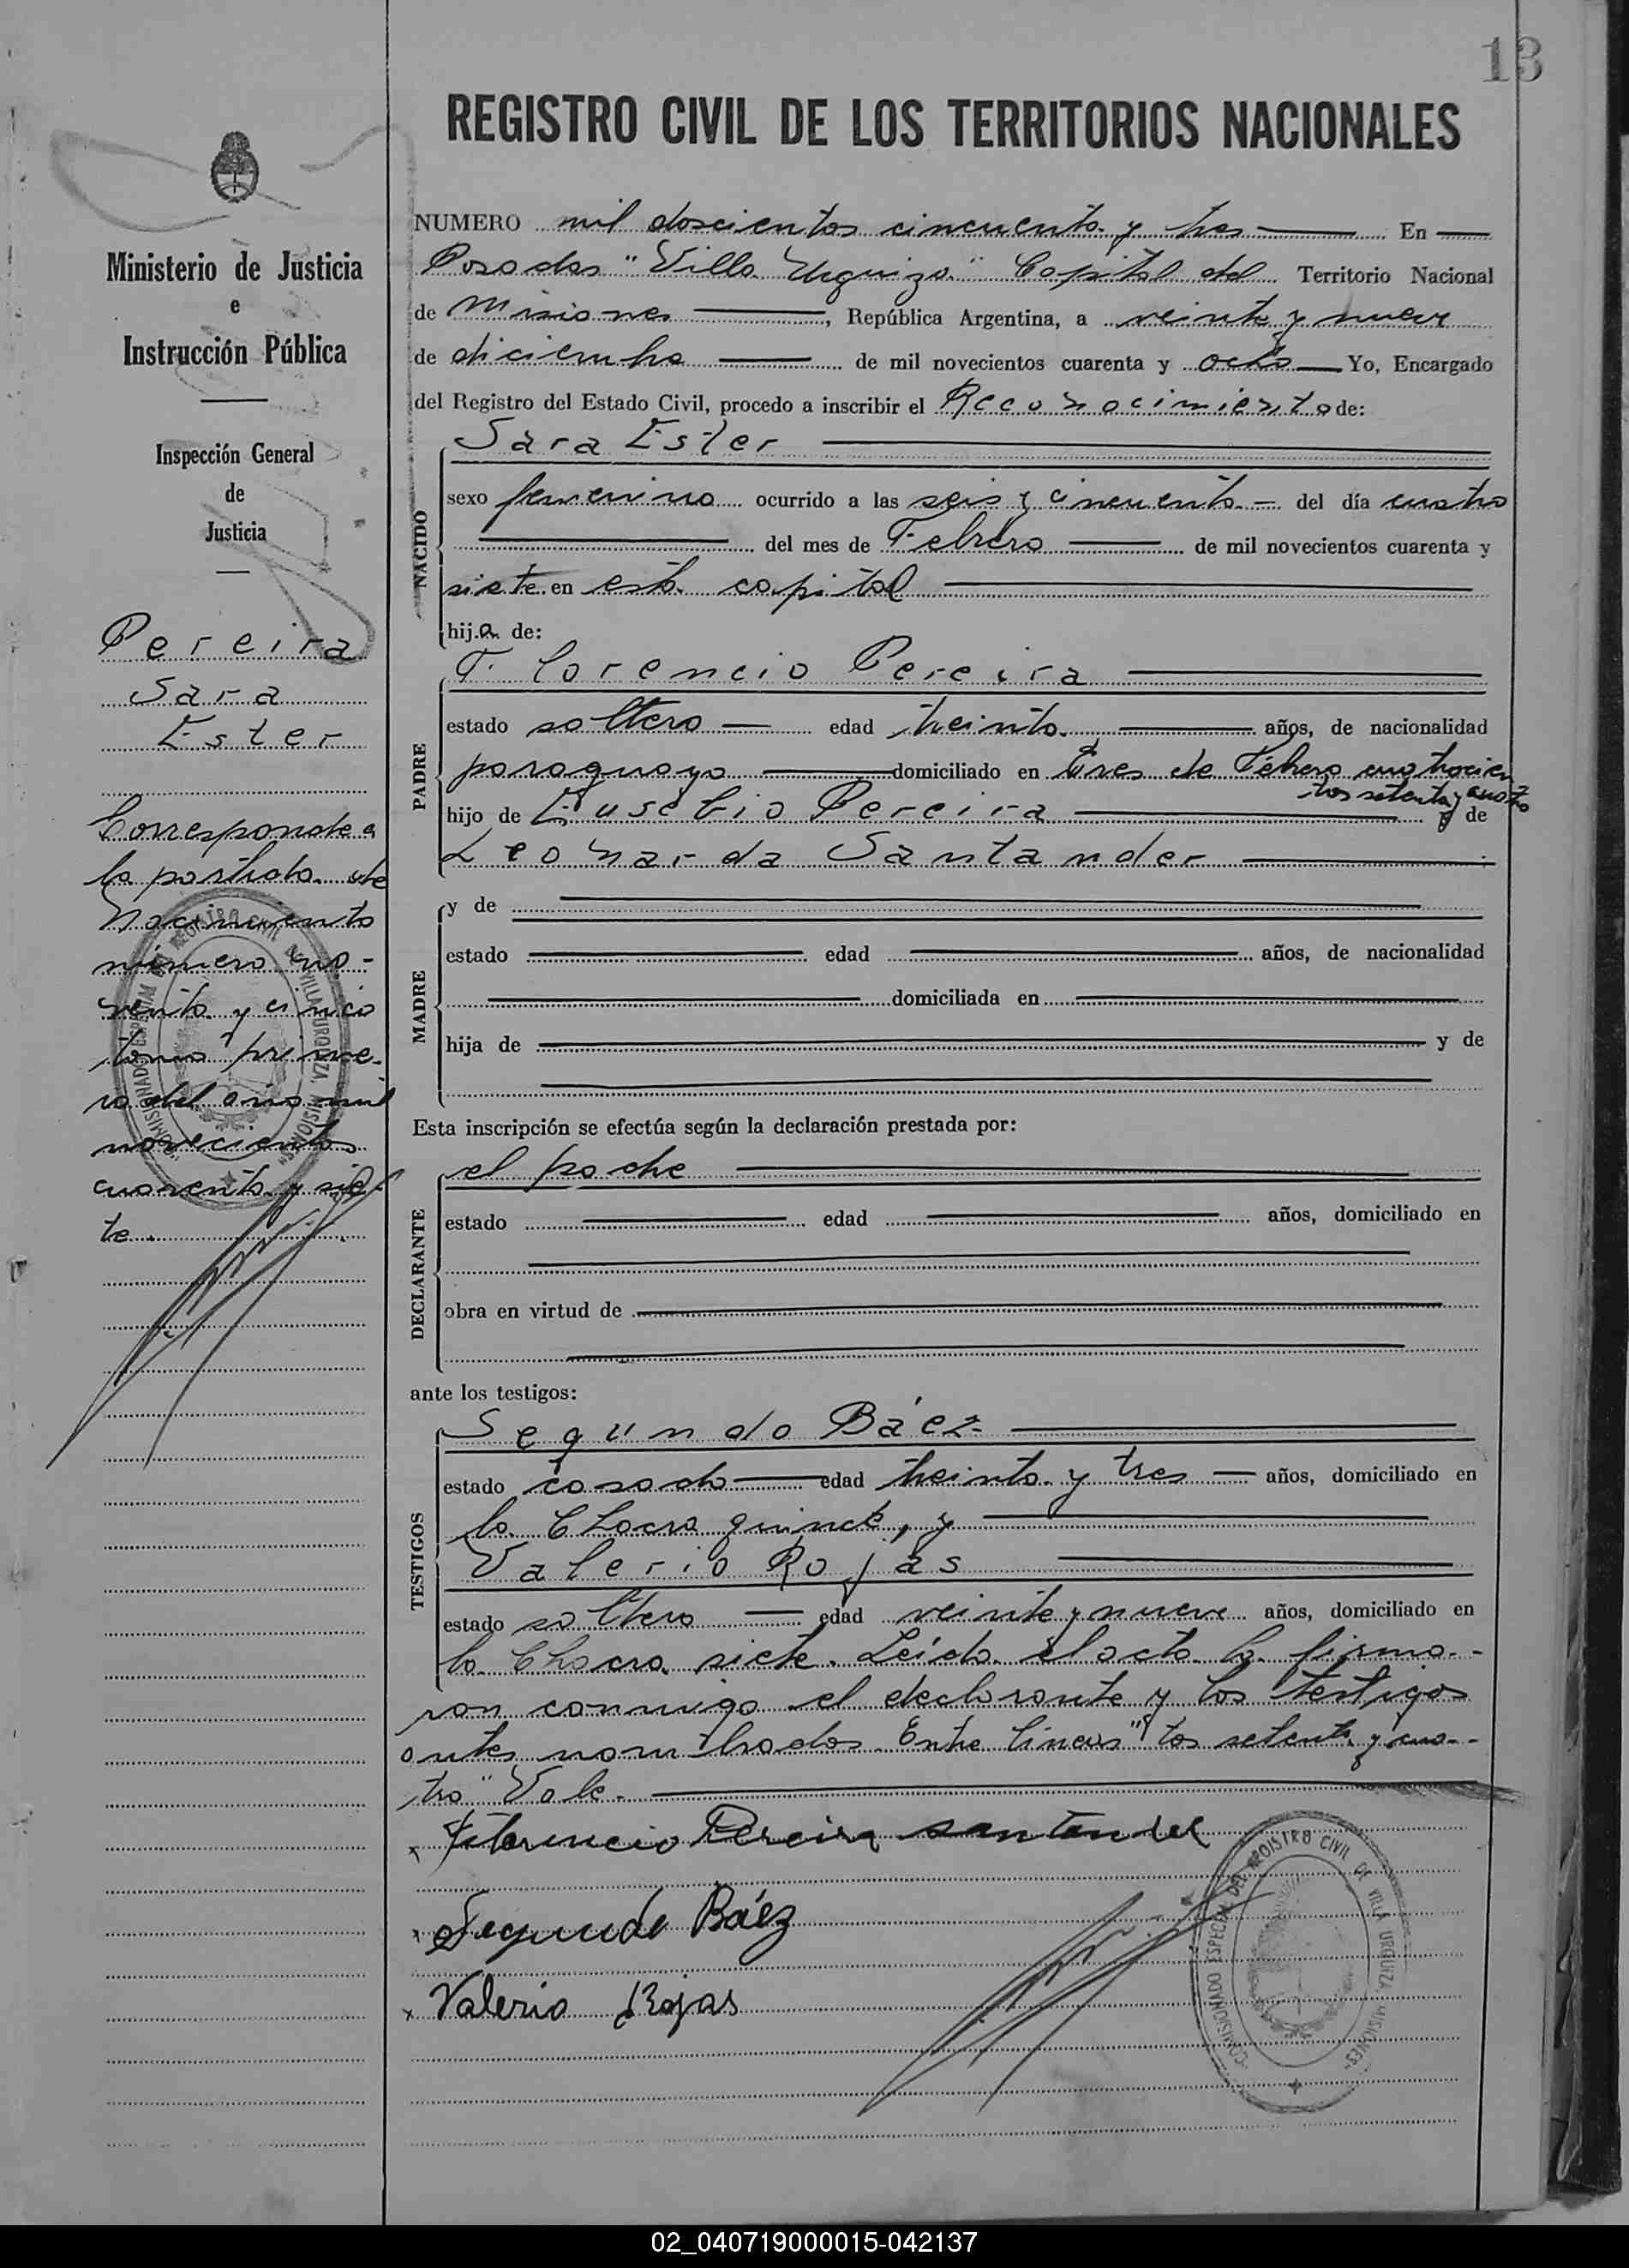 13
REGISTRO CIVIL DE LOS TERRITORIOS NACIONALES
Ministerio de Justicia
e
Instrucción Pública
Inspección General
de
Justicia
Pereira
Sara
Ester
Corresponde a
la partida de
Nacimiento
número no-
venta y cinco
tomo prime-
ro del año mil
novecientos
cuarenta y sie-
te.
COMISIONADO ESPECIAL DEL REGISTRO CIVIL DE VILLA URQUIZA, MISIONES
NUMERO mil doscientos cincuenta y tres En
Posadas "Villa Urquiza" Capital del Territorio Nacional
de Misiones, República Argentina, a veinte y nueve
de diciembre de mil novecientos cuarenta y ocho Yo, Encargado
del Registro del Estado Civil, procedo a inscribir el Reconocimiento de:
NACIDO
Sara Ester
sexo femenino ocurrido a las seis y cincuenta del día cuatro
del mes de Febrero de mil novecientos cuarenta y
siete en esta capital
hija de:
PADRE
Florencio Pereira
estado soltero edad treinta años, de nacionalidad
paraguaya domiciliado en Tres de Febrero cuatrocien
tos setenta y cuatro
hijo de Eusebio Pereira y de
Leonarda Santander
MADRE
y de
estado edad años, de nacionalidad
domiciliada en
hija de y de
Esta inscripción se efectúa según la declaración prestada por:
DECLARANTE
el padre
estado edad años, domiciliado en
obra en virtud de
ante los testigos:
TESTIGOS
Segundo Báez
estado casado edad treinta y tres años, domiciliado en
la Chacra quince, y
Valerio Rojas
estado soltero edad veinte y nueve años, domiciliado en
la Chacra siete. Leída el acta la firma-
ron conmigo el declarante y los testigos
antes nombrados. Entre líneas "tos setenta y cua-
tro" Vale.
x Florencio Pereira Santander
x Segundo Báez
x Valerio Rojas
COMISIONADO ESPECIAL DEL REGISTRO CIVIL DE VILLA URQUIZA, MISIONES
02_040719000015-042137